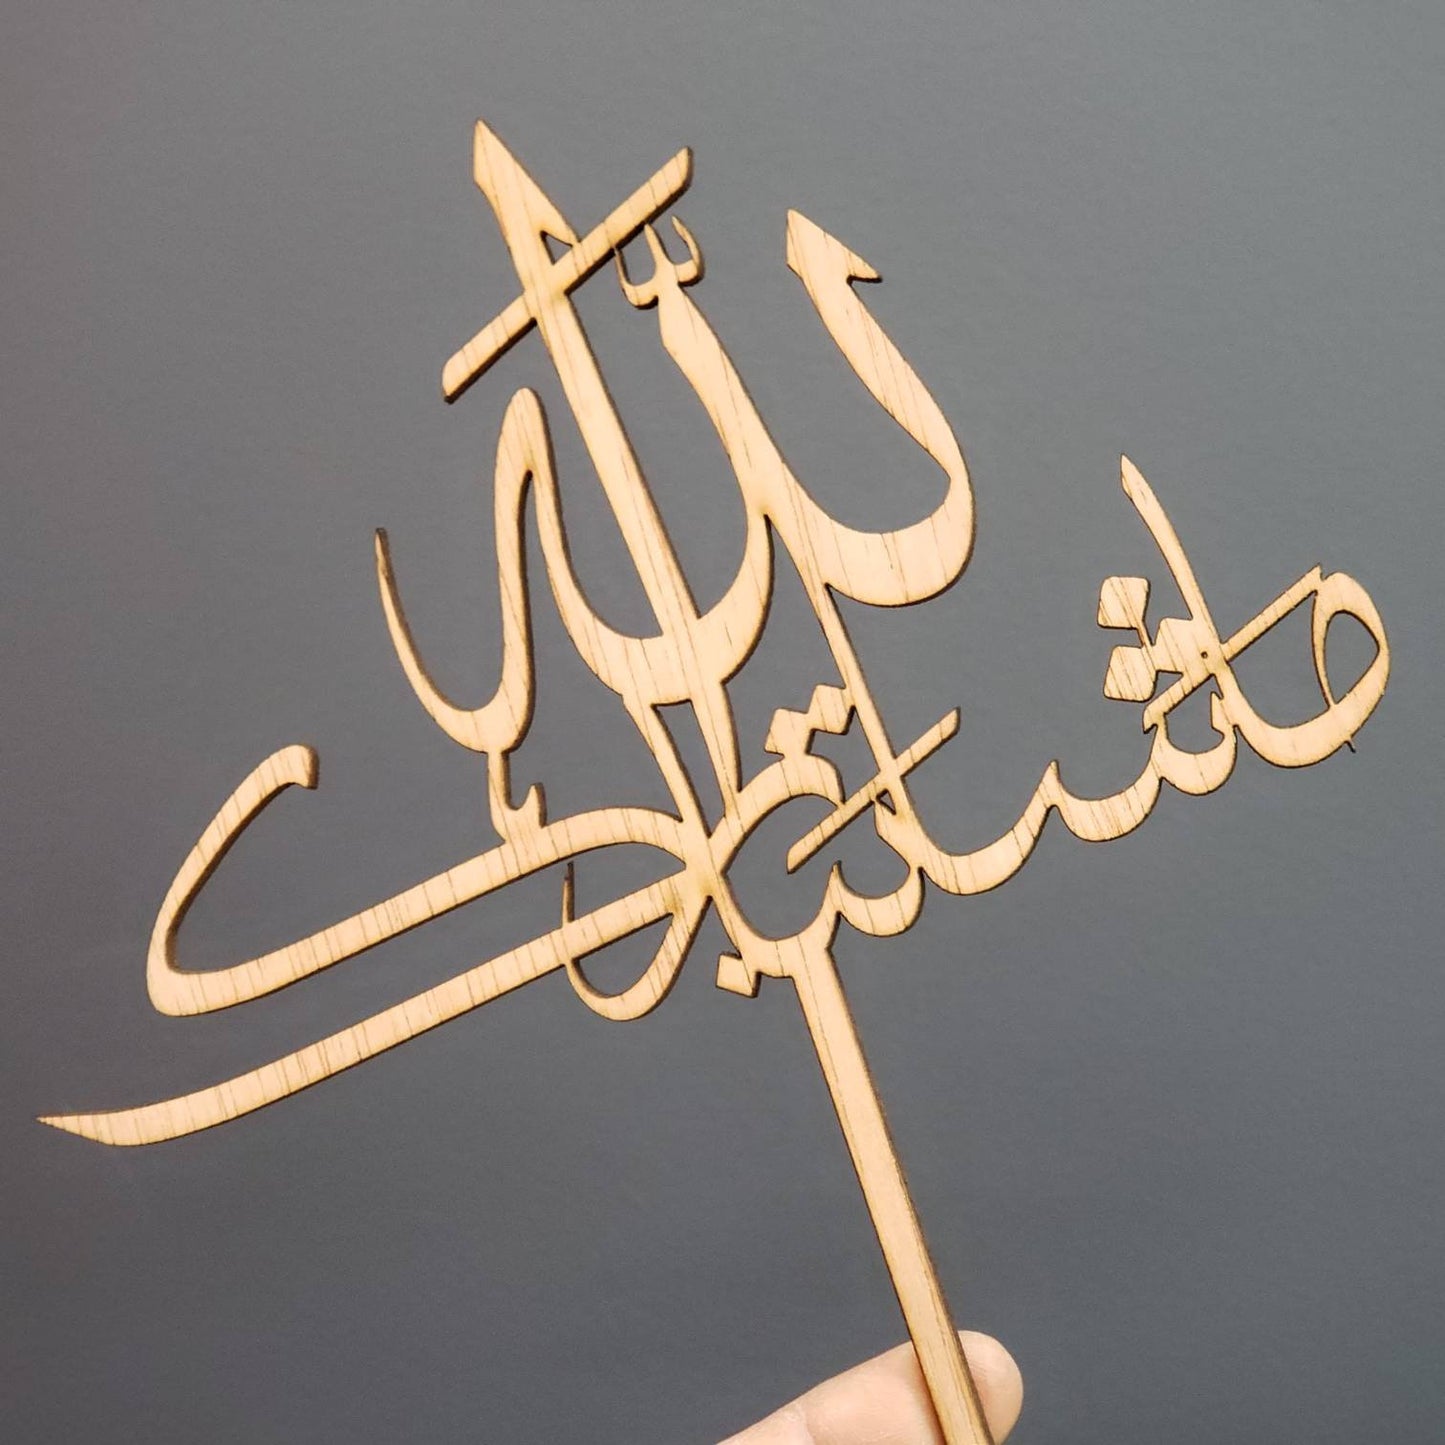 ما شاء الله تبارك